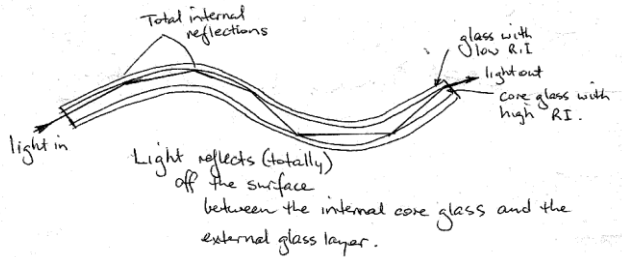 Total internal
reflections
glass with
low R.I
light out
core glass with
high RI.
light in
Light reflects (totally)
off the surface
between the internal core glass and the
external glass layer.